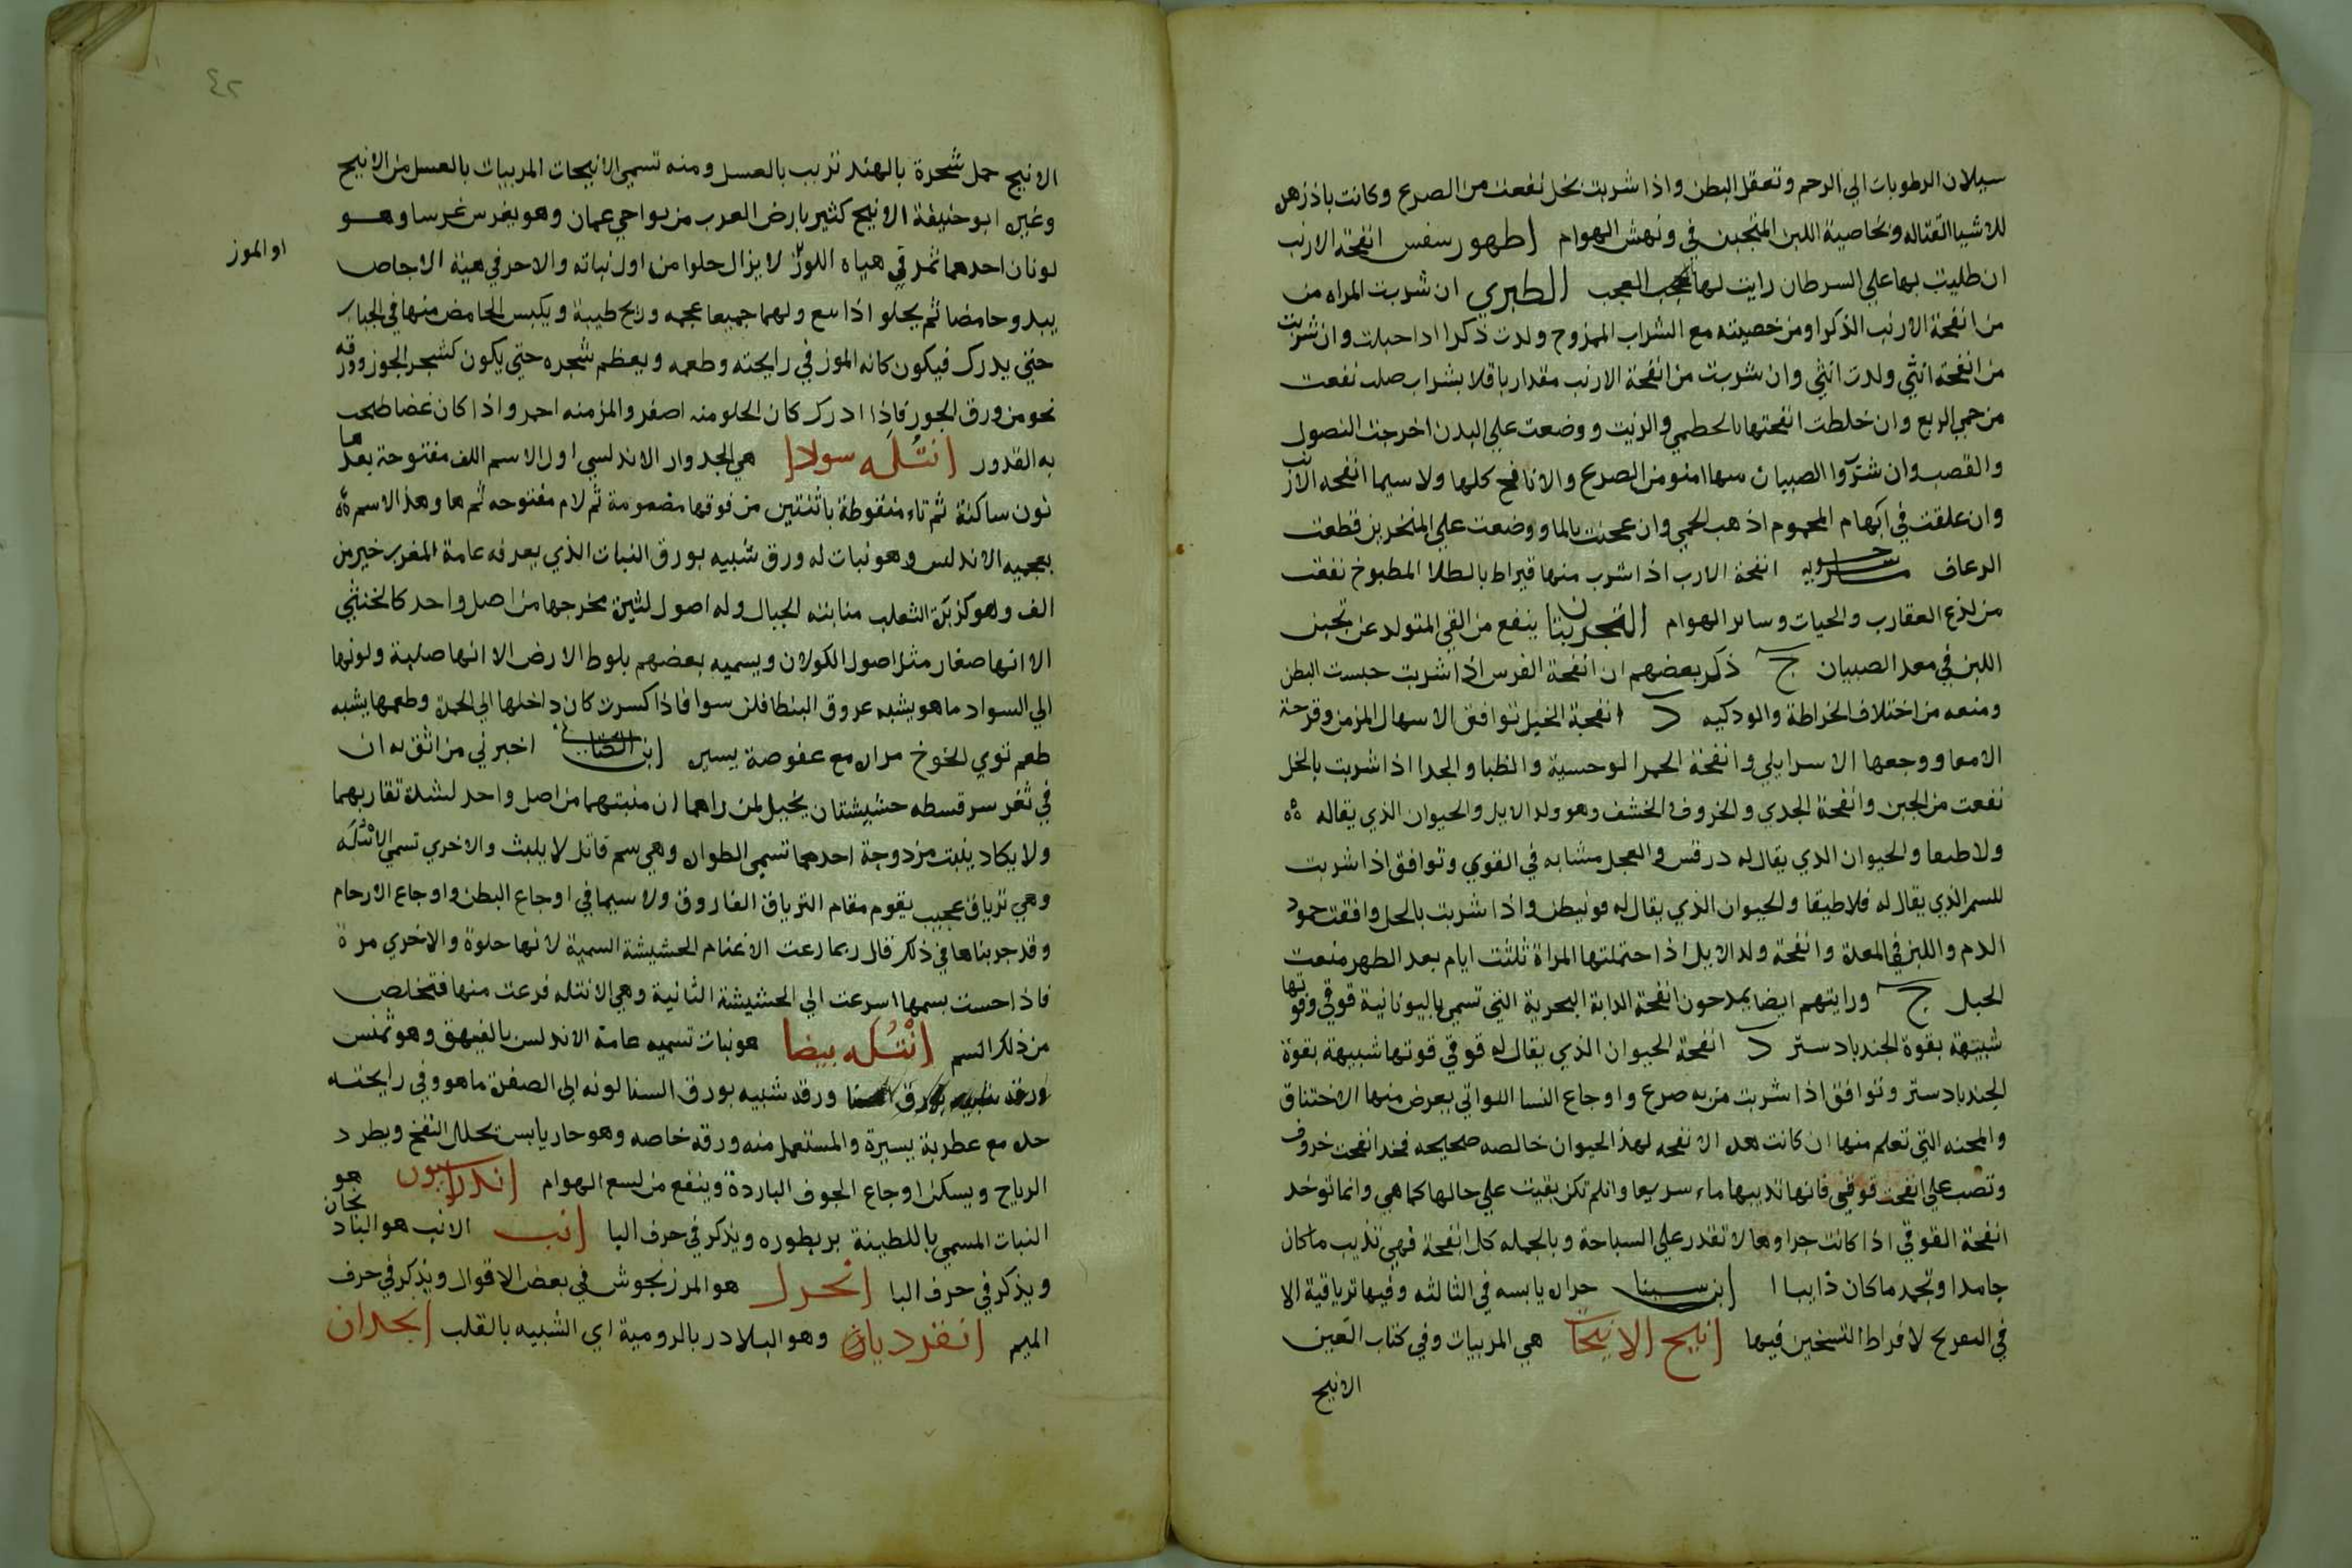 سيلان الرطوبات الي الرحم وتعقل البطن واذا شربت بخل نفعت من الصرع وكانت باذزهر
للاشيا القتاله وبخاصية اللبن المتجبن في ونهش الهوام اطهورسفس انفحة الارنب
ان طليت بها علي السرطان رايت لها العجب العجب الطبري ان شربت المراه من
من انفحة الارنب الذكر اومن خصيته مع الشراب الممزوج ولدت ذكرا اداحبلت وان شربت
من انفحة انثي ولدت انثي وان شربت من انفحة الارنب مقدار باقلا بشراب صلب نفعت
من حمي الربع وان خلطت انفحتها بالخطمي والزيت ووضعت علي البدن اخرجت النصول
والقصب وان شربوا الصبيان منها امنو من الصرع والانافح كلها ولا سيما انفحه الارنب
وان علقت في ابهام المحموم اذهب الحمي وان عجنت بالما ووضعت علي المنخرين قطعت
الرعاف انفحة الارب اذا شرب منها قيراط بالطلا المطبوخ نفعت
من لذع العقارب والحيات وساير الهوام التجربتان ينفع من القي المتولد عن تجبن
اللبن في معد الصبيان ج ذكر بعضهم ان انفحة الفرس اذا شربت حبست البطن
ومنعه من اختلاف الخراطة والودكيه د انفحة الخيل توافق الاسهال المزمن وقرحة
الامعا ووجعها الاسرايلي وانفحة الحمر الوحسية والظبا والجدا اذا شربت بالخل
نفعت من الجبن وانفحة الجدي والخروف والخشف وهو ولد الايل والحيوان الذي يقاله ەە
ولاطيعا والحيوان الذي يقال له درقس والعجل مشابه في القوي وتوافق اذا شربت
للسم الذي يقال له فلاطيقا والحيوان الذي يقال له مونيطن واذا شربت بالخل وافقت جمود
الدم واللبن في المعدة وانفحة ولد الايل اذا حتملتها المراة ثلثت ايام بعد الطهر منعت
الحبل ج ورايتهم ايضا يمدحون انفحة الدابة البحرية التي تسمي باليونانية قوقي وقوتها
شبيهة بقوة الجندبادستر د انفحة الحيوان الذي يقال له قوقي قوتها شبيهة بقوة
الجندبادستر وتوافق اذا شربت من به صرع واوجاع النسا اللواتي يعرض منها الاختناق
والمحنه التي تعلم منها ان كانت هده الانفحه لهذا الحيوان خالصه صحيحه فخد انفحت خروف
وتصب علي انفحت قوقي فانها تديبها ماء سريعا وانلم تكن بقيت علي حالها كما هي وانما توخد
انفحة القوقي اذا كانت جراوها لا تقدر علي السباحة وبالجمله كل انفحة فهي تذيب ماكان
جامدا وتجمد ماكان ذايبا ابن سينا حاره يابسه في الثالثه وفيها ترياقية الا
في التفريح لافراط التسخين فيها انبج الانبجات هي المربيات وفي كتاب العين
الانبج
٤٢
الانبج حمل شجرة بالهند تربب بالعسل ومنه تسمي الانبجات المربيات بالعسل من الانبج
وغيره ابو حنيفة الانبج كثير بارض العرب من نواحي عمان وهو يغرس غرسا وهو
لونان احدهما ثمرتي هياه اللوز لا يزال حلوا من اول نباته والاخر في هية الاجاص
او الموز
يبدو حامضا ثم يحلو اذا ينع ولهما جميعا عجمه وريح طيبة ويكبس الحامض منها في الجباب
حتي يدرك فيكون كانه الموز في رايحته وطعمه ويعظم شجره حتي يكون كشجر الجوز وورقه
نحو من ورق الجوز فاذا ادرك كان الحلو منه اصفر والمز منه احمر واذا كان غضا طبخ
به القدور انتله سودا هي الجدوار الاندلسي اول الاسم الف مفتوحة بعدها
نون ساكنة ثم تاء منقوطة باثنتين من فوقها مضمومة ثم لام مفتوحه ثم ها وهذا الاسم ەە
بعجميه الاندلس وهو نبات له ورق شبيه بورق النبات الذي يعرفه عامة المغرب خيرمن
الف وهو كزبرة الثعلب منابته الجبال وله اصول لثيرة مخرجها من اصل واحد كالخنثي
الا انها صغار مثل اصول الكولان ويسميه بعضهم بلوط الارض الا انها صلبة ولونها
الي السواد ما هو يشبه عروق البنطافلن سوا فاذا كسرت كان داخلها الي الحمرة وطعمها يشبه
طعم نوي الخوخ مراره مع عفوصة يسيره اخبرني من اثق به ان
في ثغر سرقسطه حشيشتان يخيل لمن راهما ان منبتهما من اصل واحد لشدة تقاربهما
ولا يكاد ينبت مزدوجة احدهما تسمي الطواره وهي سم قاتل لا يلبث والاخري تسمي الانتله
وهي ترياق عجيب يقوم مقام الترياق الفاروق ولا سيما في اوجاع البطن واوجاع الارحام
وقد جربناها في ذلك قال ربما رعت الاغنام الحشيشة السمية لانها حلوة والاخري مرة
فاذا حست بسمها اسرعت الي الحشيشة الثانية وهي الانتله فرعت منها فتخلص
من ذلك السم انتله بيضا هو نبات تسميه عامة الاندلس بالفيهق وهو تمنس
ورقه شبيه بورق السنا لونه الي الصفرة ما هو وفي رايحته
حده مع عطرية يسيرة والمستعمل منه ورقه خاصه وهو حار يابس يحلل النفخ ويطرد
الرياح ويسكن اوجاع الجوف الباردة وينفع من لسع الهوام اندراسيون هو
النبات المسمي باللطينة بربطوره ويذكر في حرف البا انب الانب هو الباذنجان
ويذكر في حرف البا انجرك هو المرزنجوش في بعض الاقوال ويذكر في حرف
الميم انقرديان وهو البلادر بالرومية اي الشبيه بالقلب انجدان